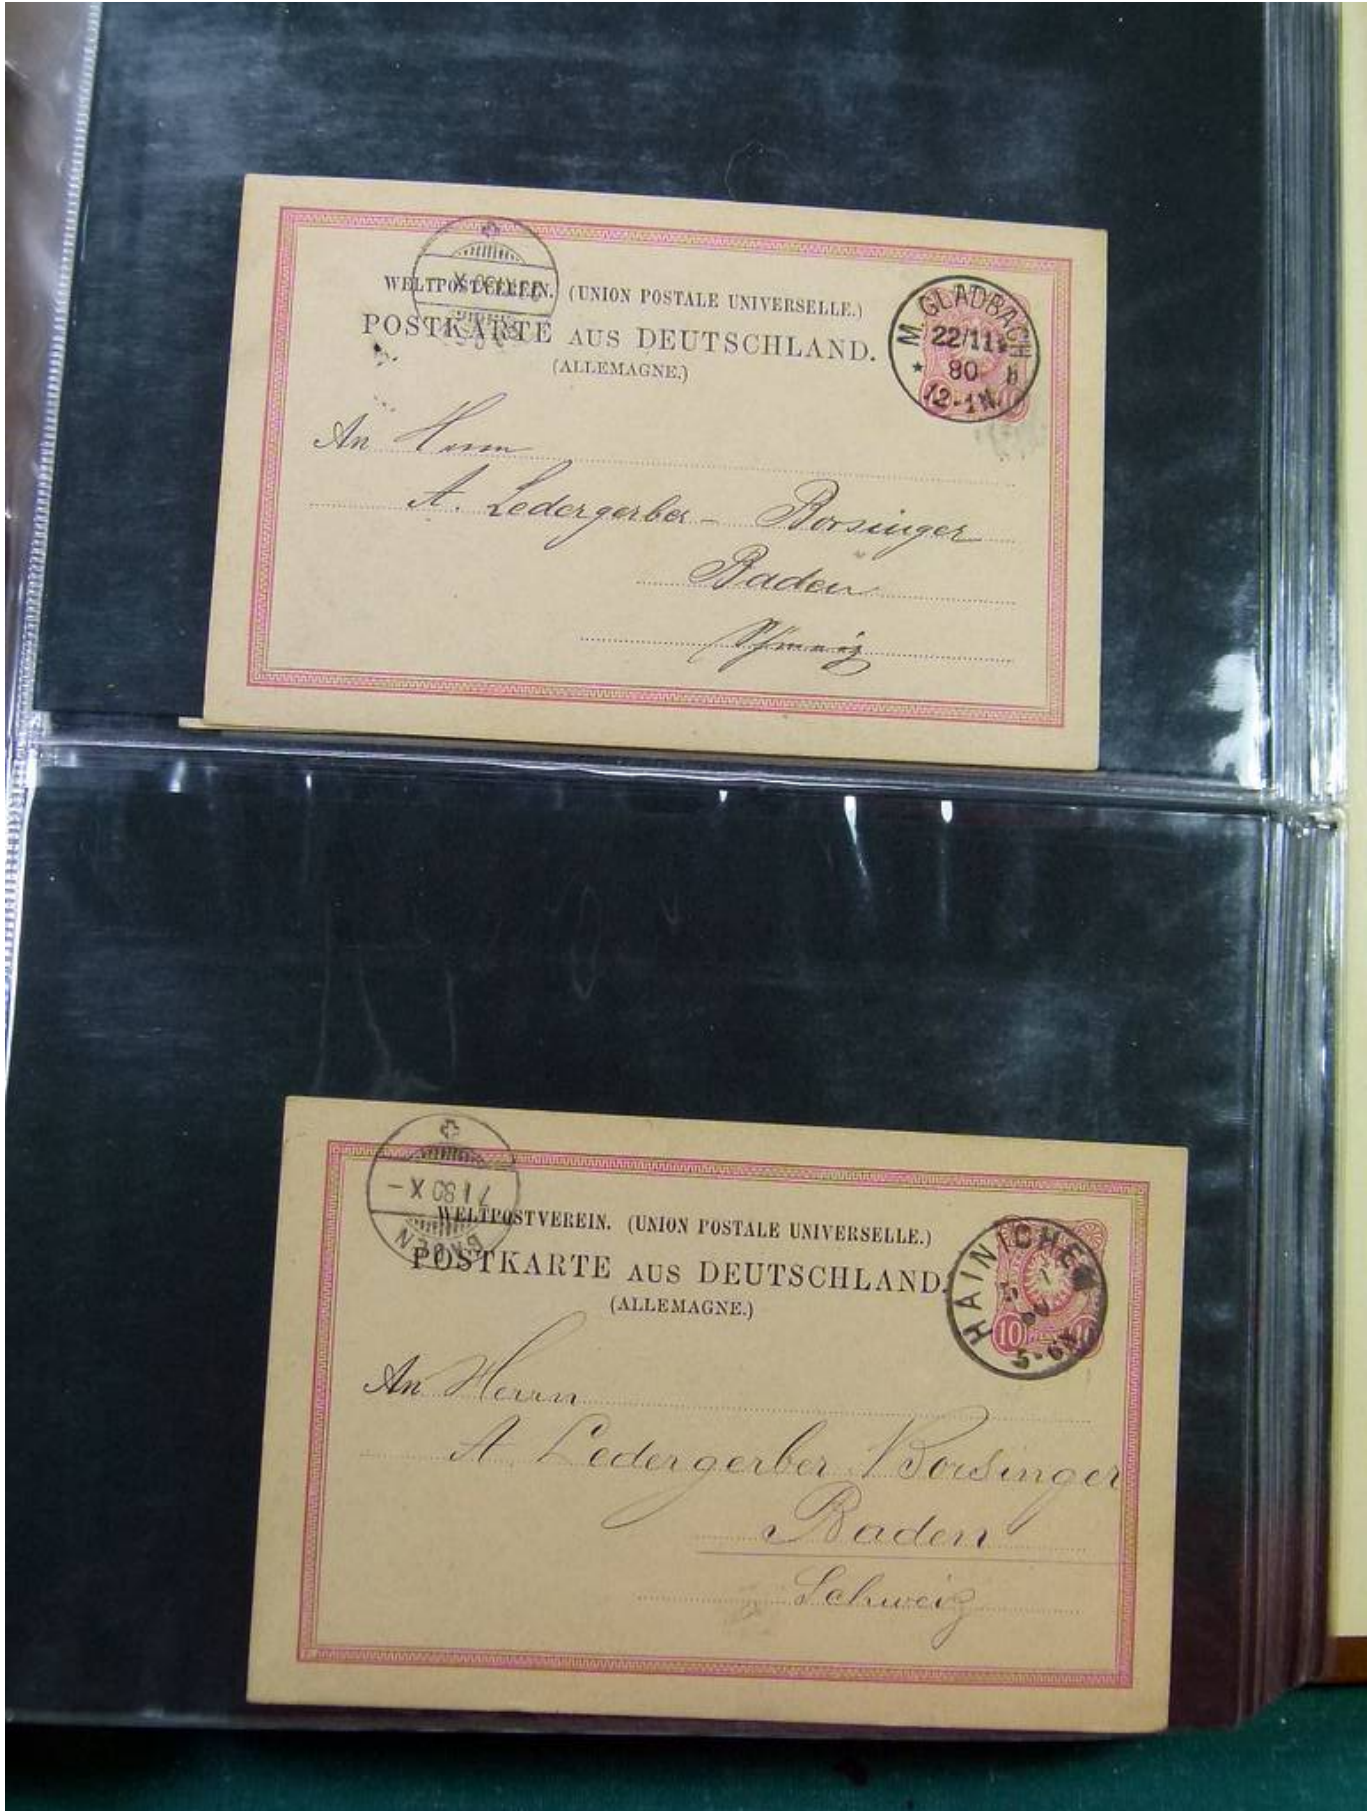 WELTPOSTVEREIN. (UNION POSTALE UNIVERSELLE.)
POSTKARTE AUS DEUTSCHLAND.
(ALLEMAGNE.)
M. GLADBACH
22/11
80
12-1N.
An Herrn
A. Ledergerber - Borsinger
Baden
Schweiz
7 I 80 X -
BADEN
WELTPOSTVEREIN. (UNION POSTALE UNIVERSELLE.)
POSTKARTE AUS DEUTSCHLAND.
(ALLEMAGNE.)
HAINICHEN
5-6N
10 10
An Herrn
A Ledergerber Borsinger
Baden
Schweiz